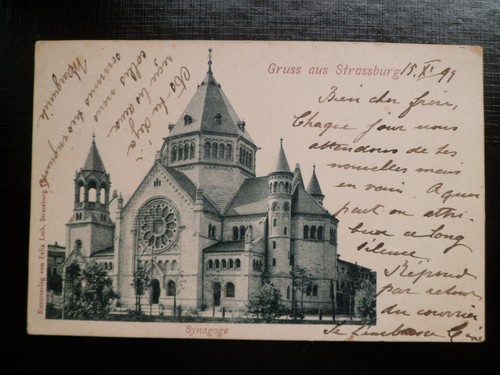 Gruss aus Strassburg
15. XI. 99
Bien cher frère,
Chaque jour nous
attendons de tes
nouvelles mais
en vain. A quoi
peut on attri-
buer ce long
silence.
Répond
par retour
du courrier
Je t'embrasse
As-tu déjà
reçu les
celles
Synagoge
Kunstverlag von Felix Luib, Strassburg